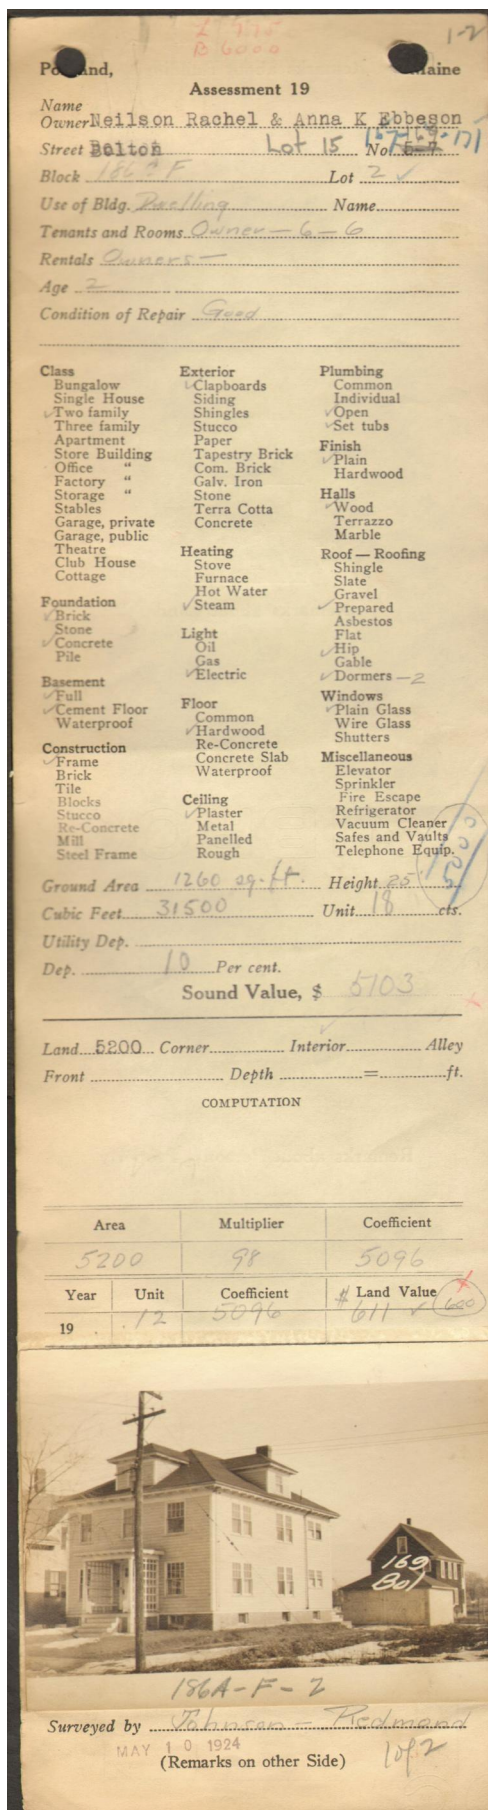 L 775
B 6000
1-2
Portland, Maine
Assessment 19
Name
Owner Neilson Rachel & Anna K Ebbeson
Street Bolton Lot 15 No. 167-169-171 5-7
Block 186A F Lot 2 ✓
Use of Bldg. Dwelling Name
Tenants and Rooms Owner — 6 — 6
Rentals Owners —
Age 2
Condition of Repair Good
Class
Bungalow
Single House
✓Two family
Three family
Apartment
Store Building
Office "
Factory "
Storage "
Stables
Garage, private
Garage, public
Theatre
Club House
Cottage
Foundation
✓Brick
Stone
✓Concrete
Pile
Basement
✓Full
✓Cement Floor
Waterproof
Construction
✓Frame
Brick
Tile
Blocks
Stucco
Re-Concrete
Mill
Steel Frame
Exterior
✓Clapboards
Siding
Shingles
Stucco
Paper
Tapestry Brick
Com. Brick
Galv. Iron
Stone
Terra Cotta
Concrete
Heating
Stove
Furnace
Hot Water
✓Steam
Light
Oil
Gas
✓Electric
Floor
Common
✓Hardwood
Re-Concrete
Concrete Slab
Waterproof
Ceiling
✓Plaster
Metal
Panelled
Rough
Plumbing
Common
Individual
✓Open
✓Set tubs
Finish
✓Plain
Hardwood
Halls
✓Wood
Terrazzo
Marble
Roof — Roofing
Shingle
Slate
Gravel
✓Prepared
Asbestos
Flat
✓Hip
Gable
✓Dormers — 2
Windows
✓Plain Glass
Wire Glass
Shutters
Miscellaneous
Elevator
Sprinkler
Fire Escape
Refrigerator
Vacuum Cleaner
Safes and Vaults
Telephone Equip.
Ground Area 1260 sq. ft. Height 25
Cubic Feet 31500 Unit 18 cts.
Utility Dep.
Dep. 10 Per cent.
Sound Value, $ 5103
Land 5200 Corner Interior ✓ Alley
Front Depth = ft.
COMPUTATION
Area Multiplier Coefficient
5200 98 5096
Year Unit Coefficient $ Land Value
19 12 5096 611 ✓ 600
169
Bol
186A-F-2
Surveyed by Johnson — Redmond
MAY 10 1924
(Remarks on other Side)
1 of 2